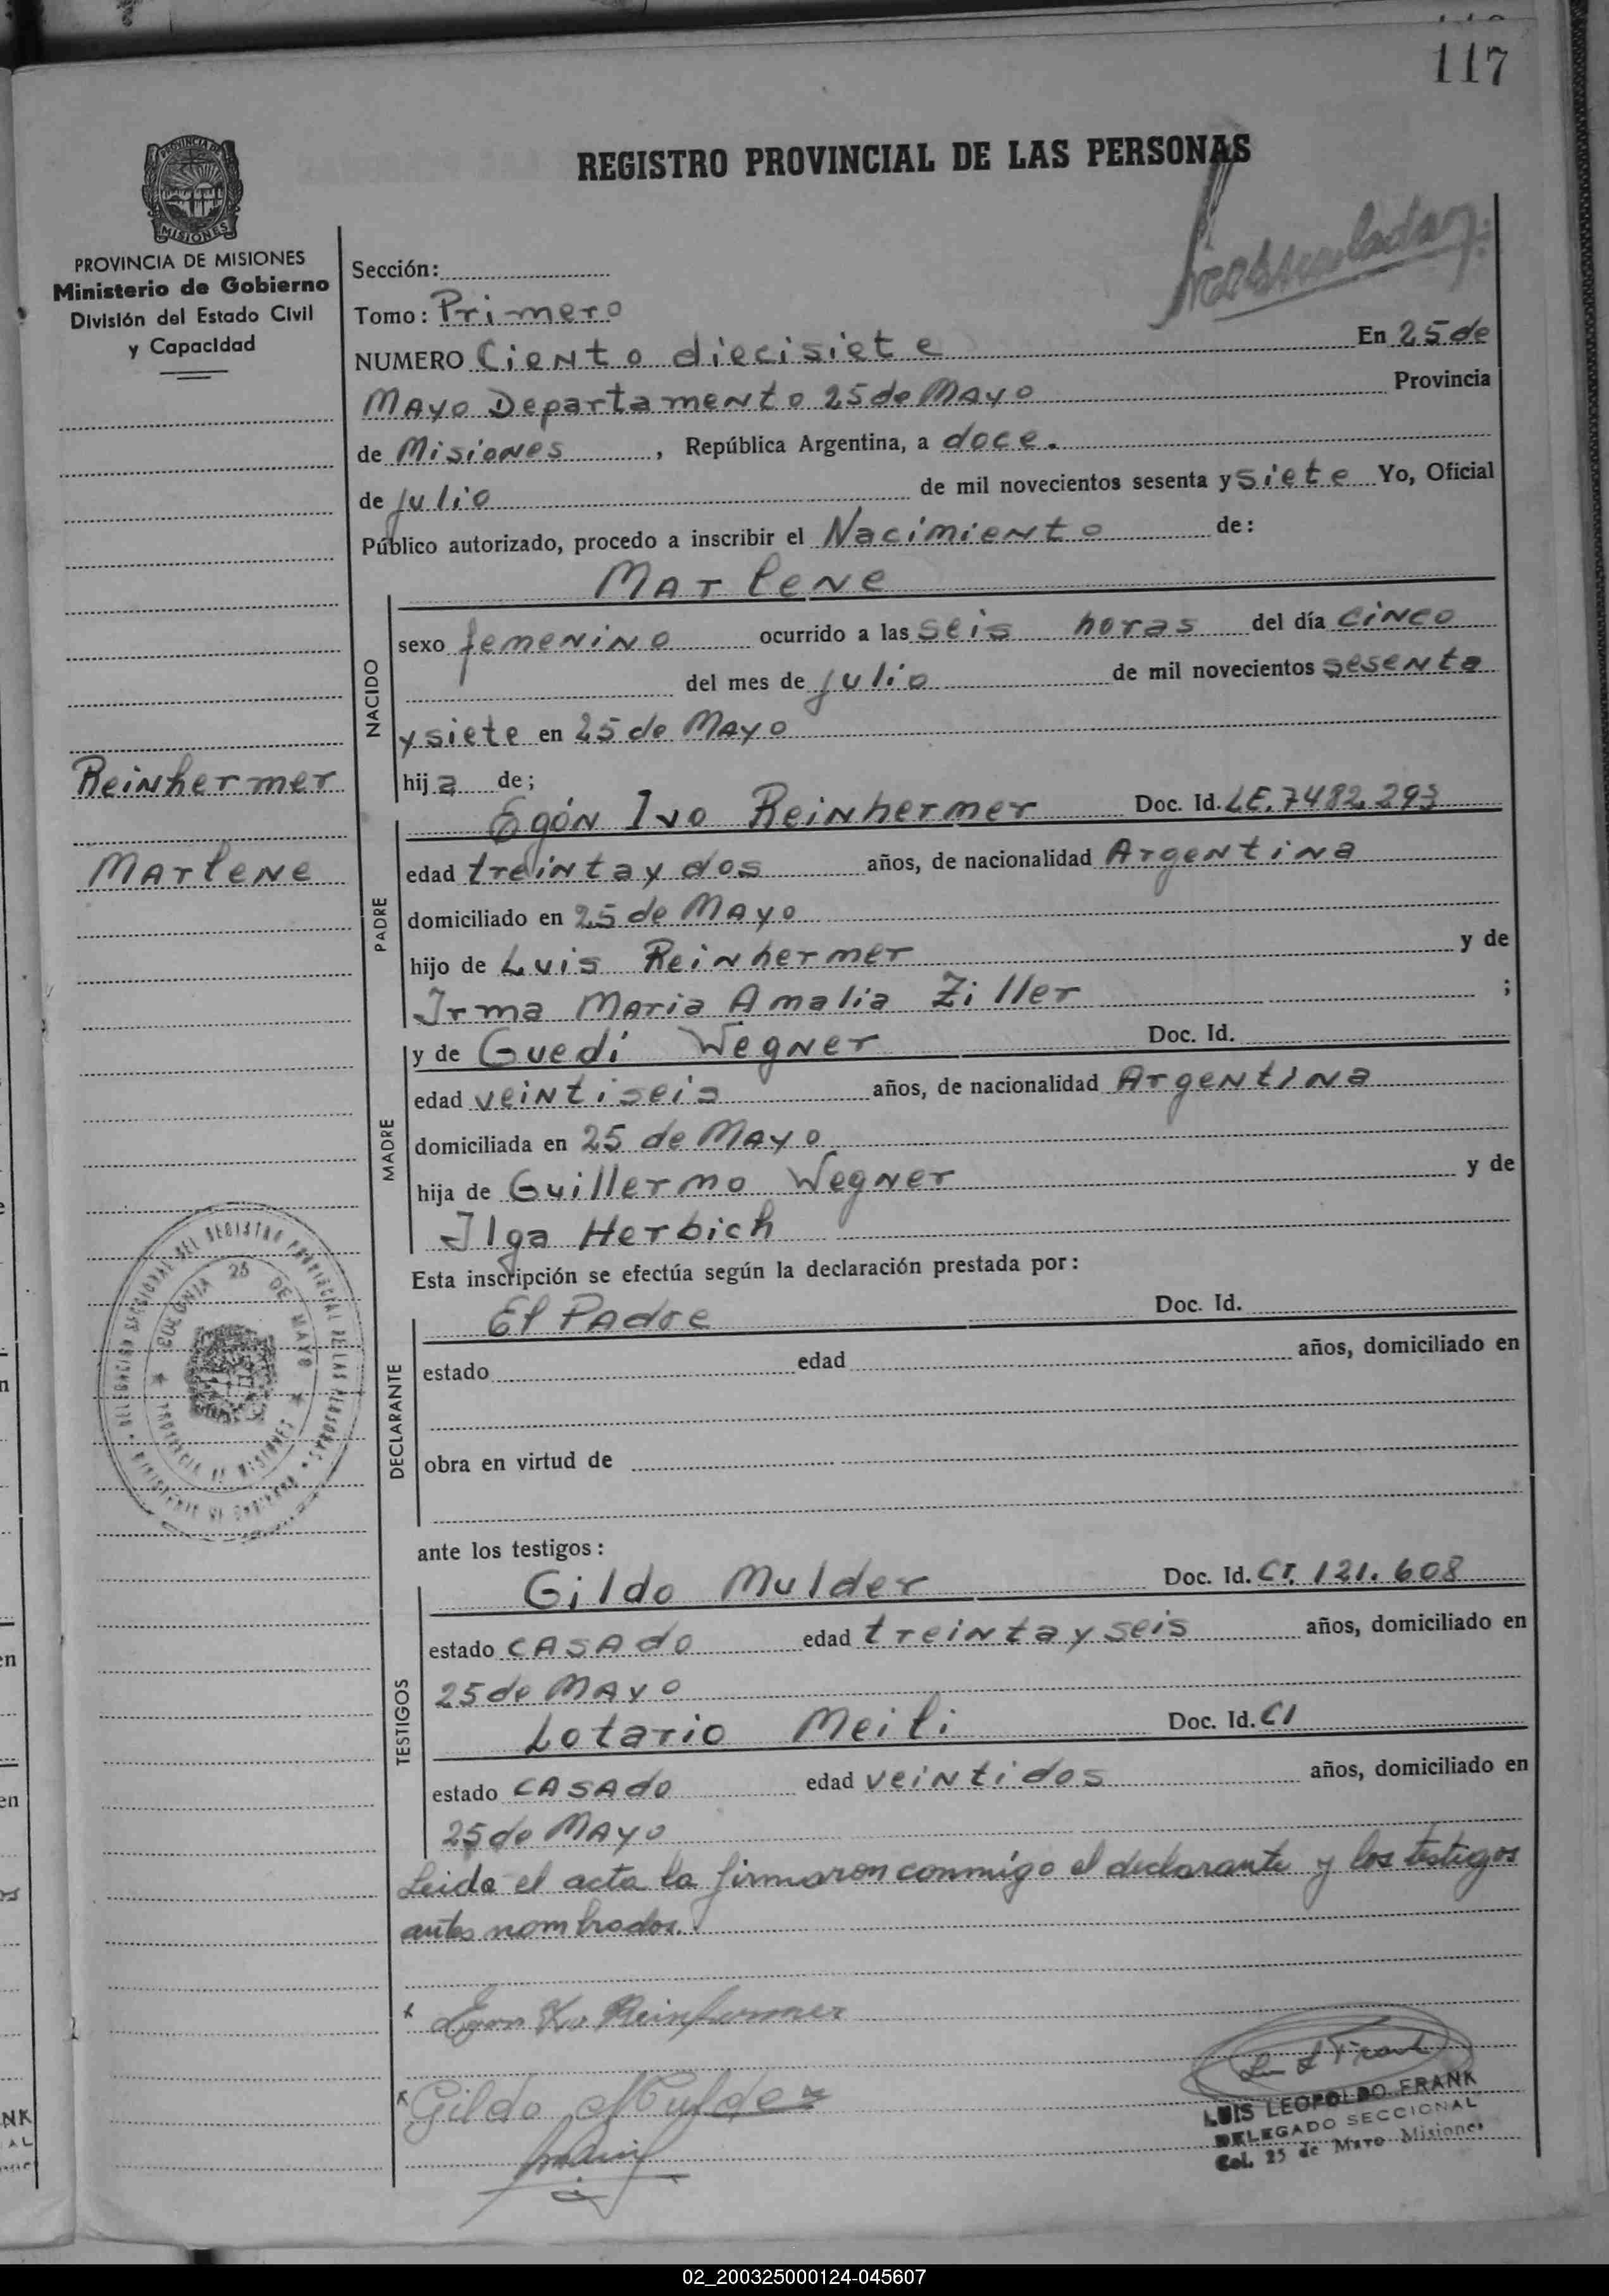 117
REGISTRO PROVINCIAL DE LAS PERSONAS
PROVINCIA DE
MISIONES
PROVINCIA DE MISIONES
Ministerio de Gobierno
División del Estado Civil
y Capacidad
Sección:
Tomo: Primero
NUMERO Ciento diecisiete En 25 de
Mayo Departamento 25 de Mayo Provincia
de Misiones, República Argentina, a doce.
de julio de mil novecientos sesenta y siete Yo, Oficial
Público autorizado, procedo a inscribir el Nacimiento de:
Marlene
NACIDO
sexo femenino ocurrido a las seis horas del día cinco
del mes de julio de mil novecientos sesenta
y siete en 25 de Mayo
hija de;
Reinhermer
Marlene
PADRE
Egón Ivo Reinhermer Doc. Id. LE. 7482.293
edad treinta y dos años, de nacionalidad Argentina
domiciliado en 25 de Mayo
hijo de Luis Reinhermer y de
Irma Maria Amalia Ziller ;
MADRE
y de Guedi Wegner Doc. Id.
edad veintiseis años, de nacionalidad Argentina
domiciliada en 25 de Mayo
hija de Guillermo Wegner y de
Ilga Herbich
Esta inscripción se efectúa según la declaración prestada por:
DECLARANTE
El Padre Doc. Id.
estado edad años, domiciliado en
obra en virtud de
DELEGACION SECCIONAL DEL REGISTRO PROVINCIAL DE LAS PERSONAS
MINISTERIO DE GOBIERNO
COLONIA 25 DE MAYO
PROVINCIA DE MISIONES
ante los testigos:
TESTIGOS
Gildo Mulder Doc. Id. CI. 121.608
estado casado edad treinta y seis años, domiciliado en
25 de Mayo
Lotario Meili Doc. Id. CI
estado casado edad veintidos años, domiciliado en
25 de Mayo
Leida el acta la firmaron conmigo el declarante y los testigos
antes nombrados.
Egon Ivo Reinhermer
Gildo Mulder
LUIS LEOPOLDO FRANK
DELEGADO SECCIONAL
Col. 25 de Mayo Misiones
02_200325000124-045607